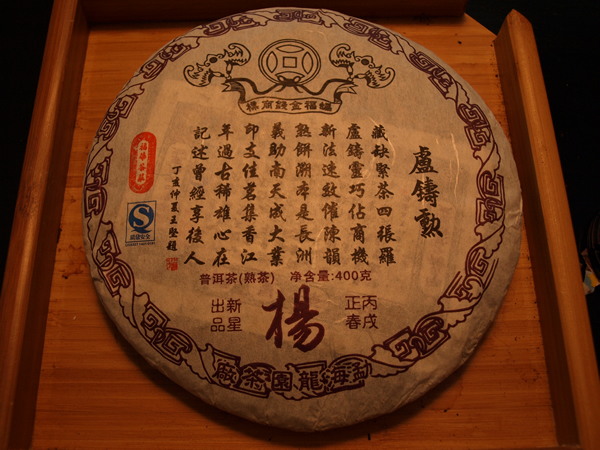 蝠福金錢商標
盧鑄勲
藏缺緊茶四張羅
盧鑄靈巧佔商機
新法速效催陳韻
熟餅溯本是長洲
義助南天成大業
印支佳茗集香江
年過古稀雄心在
記述曾經享後人
丁亥仲夏王堅題
质量安全
普洱茶(熟茶) 净含量:400克
丙戌
正春
楊
新星
出品
勐海龍園茶廠